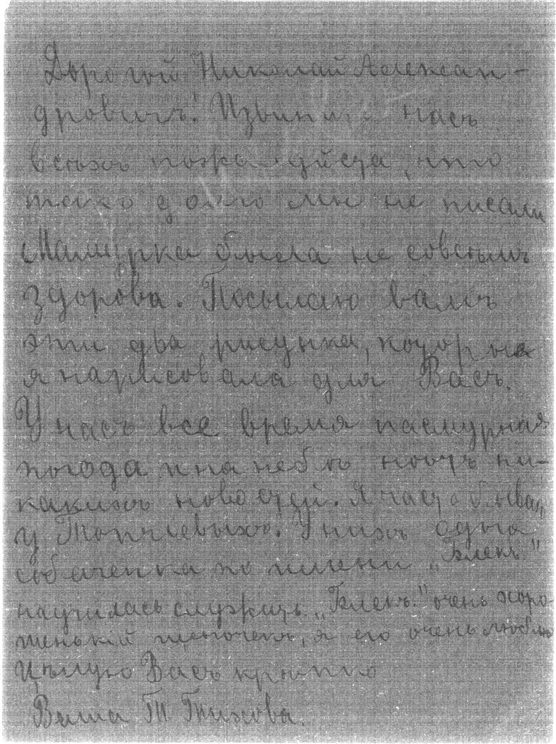 Дорогой Николай Алексан-
дровичъ! Извините насъ
всѣхъ пожалуйста, что
такъ долго мы не писали
Мамурка была не совсѣмъ
здорова. Посылаю вамъ
эти два рисунка, которые
я нарисовала для Васъ.
У насъ все время пасмурная
погода и на небѣ нѣтъ ни-
какихъ новостей. Я часто бываю
у Топчіевыхъ. У нихъ одна
собаченка по имени „Блекъ"
научилась служить. „Блекъ" очень хоро-
шенькій щеночекъ, я его очень люблю
Цѣлую Васъ крѣпко
Ваша Т. Тихова.